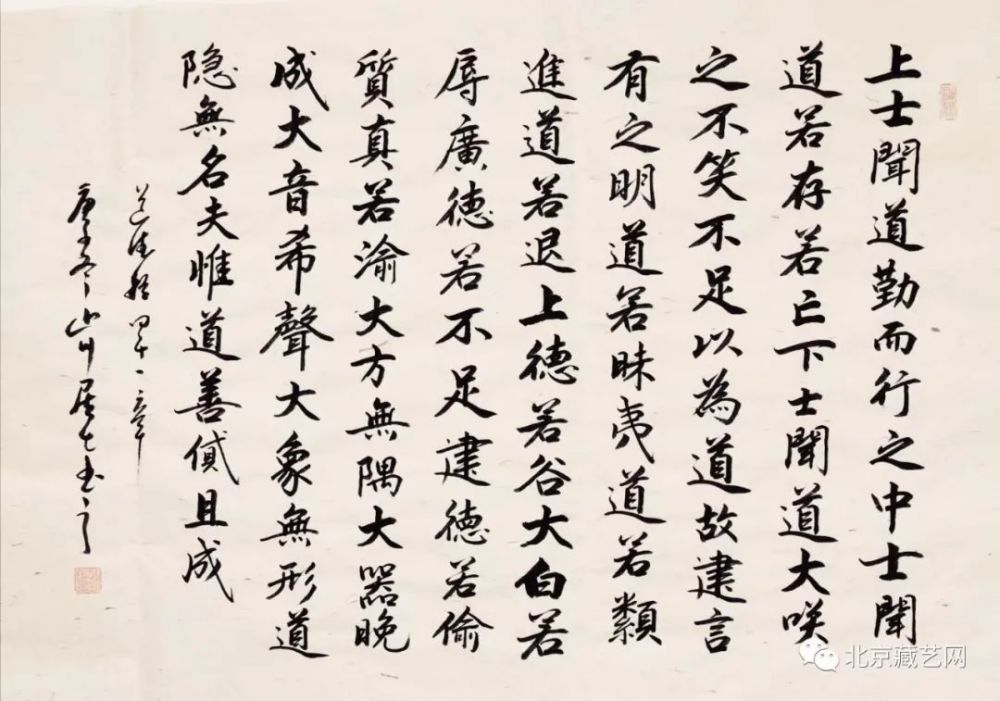 上士聞道勤而行之中士聞
道若存若亡下士聞道大咲
之不笑不足以為道故建言
有之明道若昧夷道若纇
進道若退上德若谷大白若
辱廣德若不足建德若偷
質真若渝大方無隅大器晚
成大音希聲大象無形道
隐無名夫惟道善貸且成
道德經四十一章
庚子冬山川居士書之
北京藏艺网